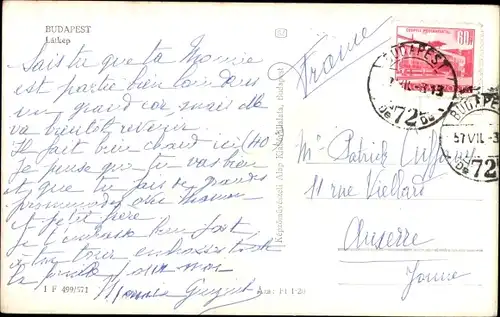 BUDAPEST
Látkép
Sais tu que ta Mamie
est partie bien loin dans
un grand car mais elle
va bientôt revenir.
Il fait bien chaud ici (40
Je pense que tu vas bien
et que tu fais de grandes
promenades avec maman
et petit père
Je t'embrasse bien fort
tu embrasses toute
la famille pour moi
Mamie
1 F 499/571
Ára: Ft 1·20
Képzőművészeti Alap Kiadóvállalata,
France
60f
BUDAPEST
72
BUDAPEST
57 VII.-3
72
Mr Patrick
11 rue
Auxerre
Yonne